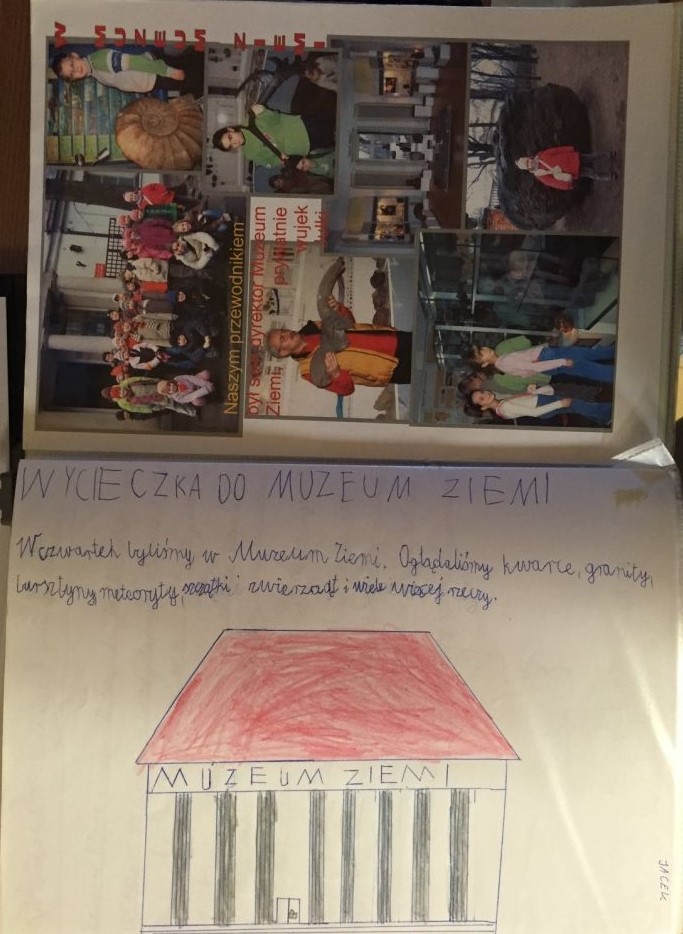 W MUZEUM ZIEMI
Naszym przewodnikiem
był sam dyrektor Muzeum
Ziemi, prywatnie
wujek
WYCIECZKA DO MUZEUM ZIEMI
W czwartek byliśmy w Muzeum Ziemi. Oglądaliśmy kwarce, granity,
bursztyny, meteoryty, szczątki zwierząt i wiele więcej rzeczy.
MUZEUM ZIEMI
JACEK